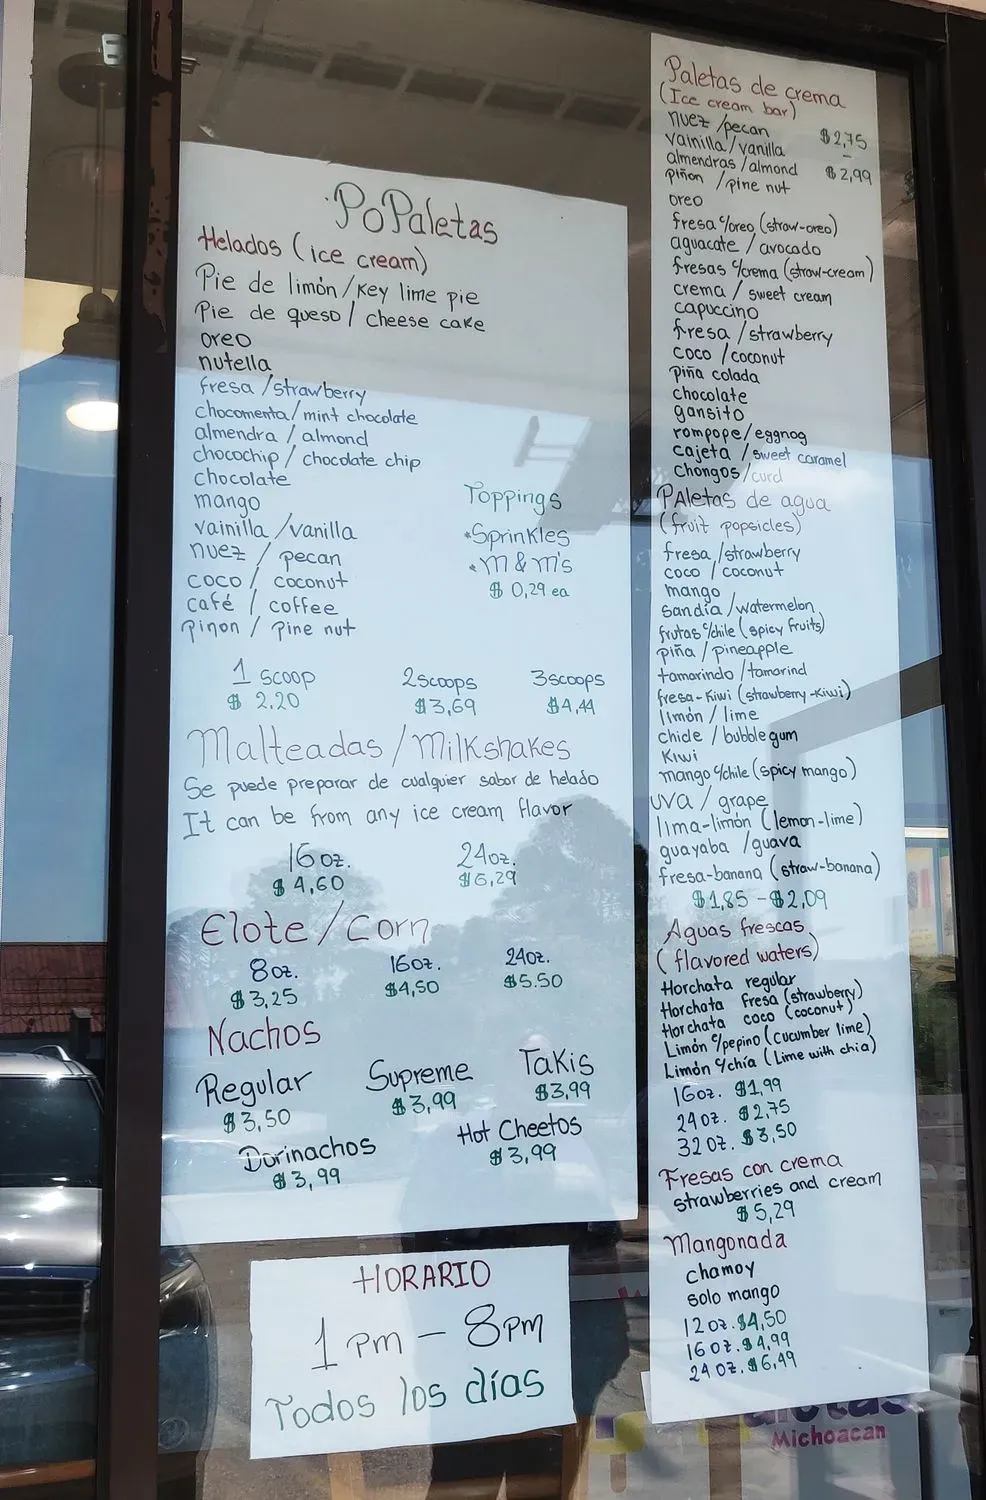 PoPaletas
Helados (ice cream)
Pie de limón/Key lime pie
Pie de queso/ cheese cake
oreo
nutella
fresa /strawberry
chocomenta/mint chocolate
almendra / almond
chocochip / chocolate chip
chocolate
mango
vainilla /vanilla
nuez / pecan
coco / coconut
café / coffee
pinon / pine nut
Toppings
•Sprinkles
•M & M's
$ 0,29 ea
1 scoop 2scoops 3scoops
$ 2.20 $3,69 $4,44
Malteadas/Milkshakes
Se puede preparar de cualquier sabor de helado
It can be from any ice cream flavor
16 oz. 24oz.
$ 4,60 $6,29
Elote/Corn
8oz. 16oz. 24oz.
$3,25 $4,50 $5.50
Nachos
Regular Supreme Takis
$3,50 $3,99 $3,99
Dorinachos Hot Cheetos
$3,99 $3,99
HORARIO
1 pm - 8pm
Todos los días
Paletas de crema
(Ice cream bar)
nuez /pecan
vainilla/vanilla
almendras/almond
piñon /pine nut
$2,75
-
$2,99
oreo
fresa c/oreo (straw-oreo)
aguacate / avocado
fresas c/crema (straw-cream)
crema / sweet cream
capuccino
fresa /strawberry
coco /coconut
piña colada
chocolate
gansito
rompope/eggnog
cajeta /sweet caramel
chongos/curd
PAletas de agua
(fruit popsicles)
fresa /strawberry
coco / coconut
mango
sandía /watermelon
frutas c/chile (spicy fruits)
piña /pineapple
tamarindo /tamarind
fresa-kiwi (strawberry-kiwi)
limón / lime
chicle / bubble gum
Kiwi
mango c/chile (spicy mango)
uva / grape
lima-limón (lemon-lime)
guayaba /guava
fresa-banana (straw-banana)
$1,85 -$2,09
Aguas frescas
(flavored waters)
Horchata regular
Horchata fresa (strawberry)
Horchata coco (coconut)
Limón c/pepino (cucumber lime)
Limón c/chía (Lime with chia)
16oz. $1,99
24oz. $2,75
32oz. $3,50
Fresas con crema
strawberries and cream
$5,29
Mangonada
chamoy
solo mango
12oz.$4,50
16oz.$4,99
24oz.$6,49
Michoacan